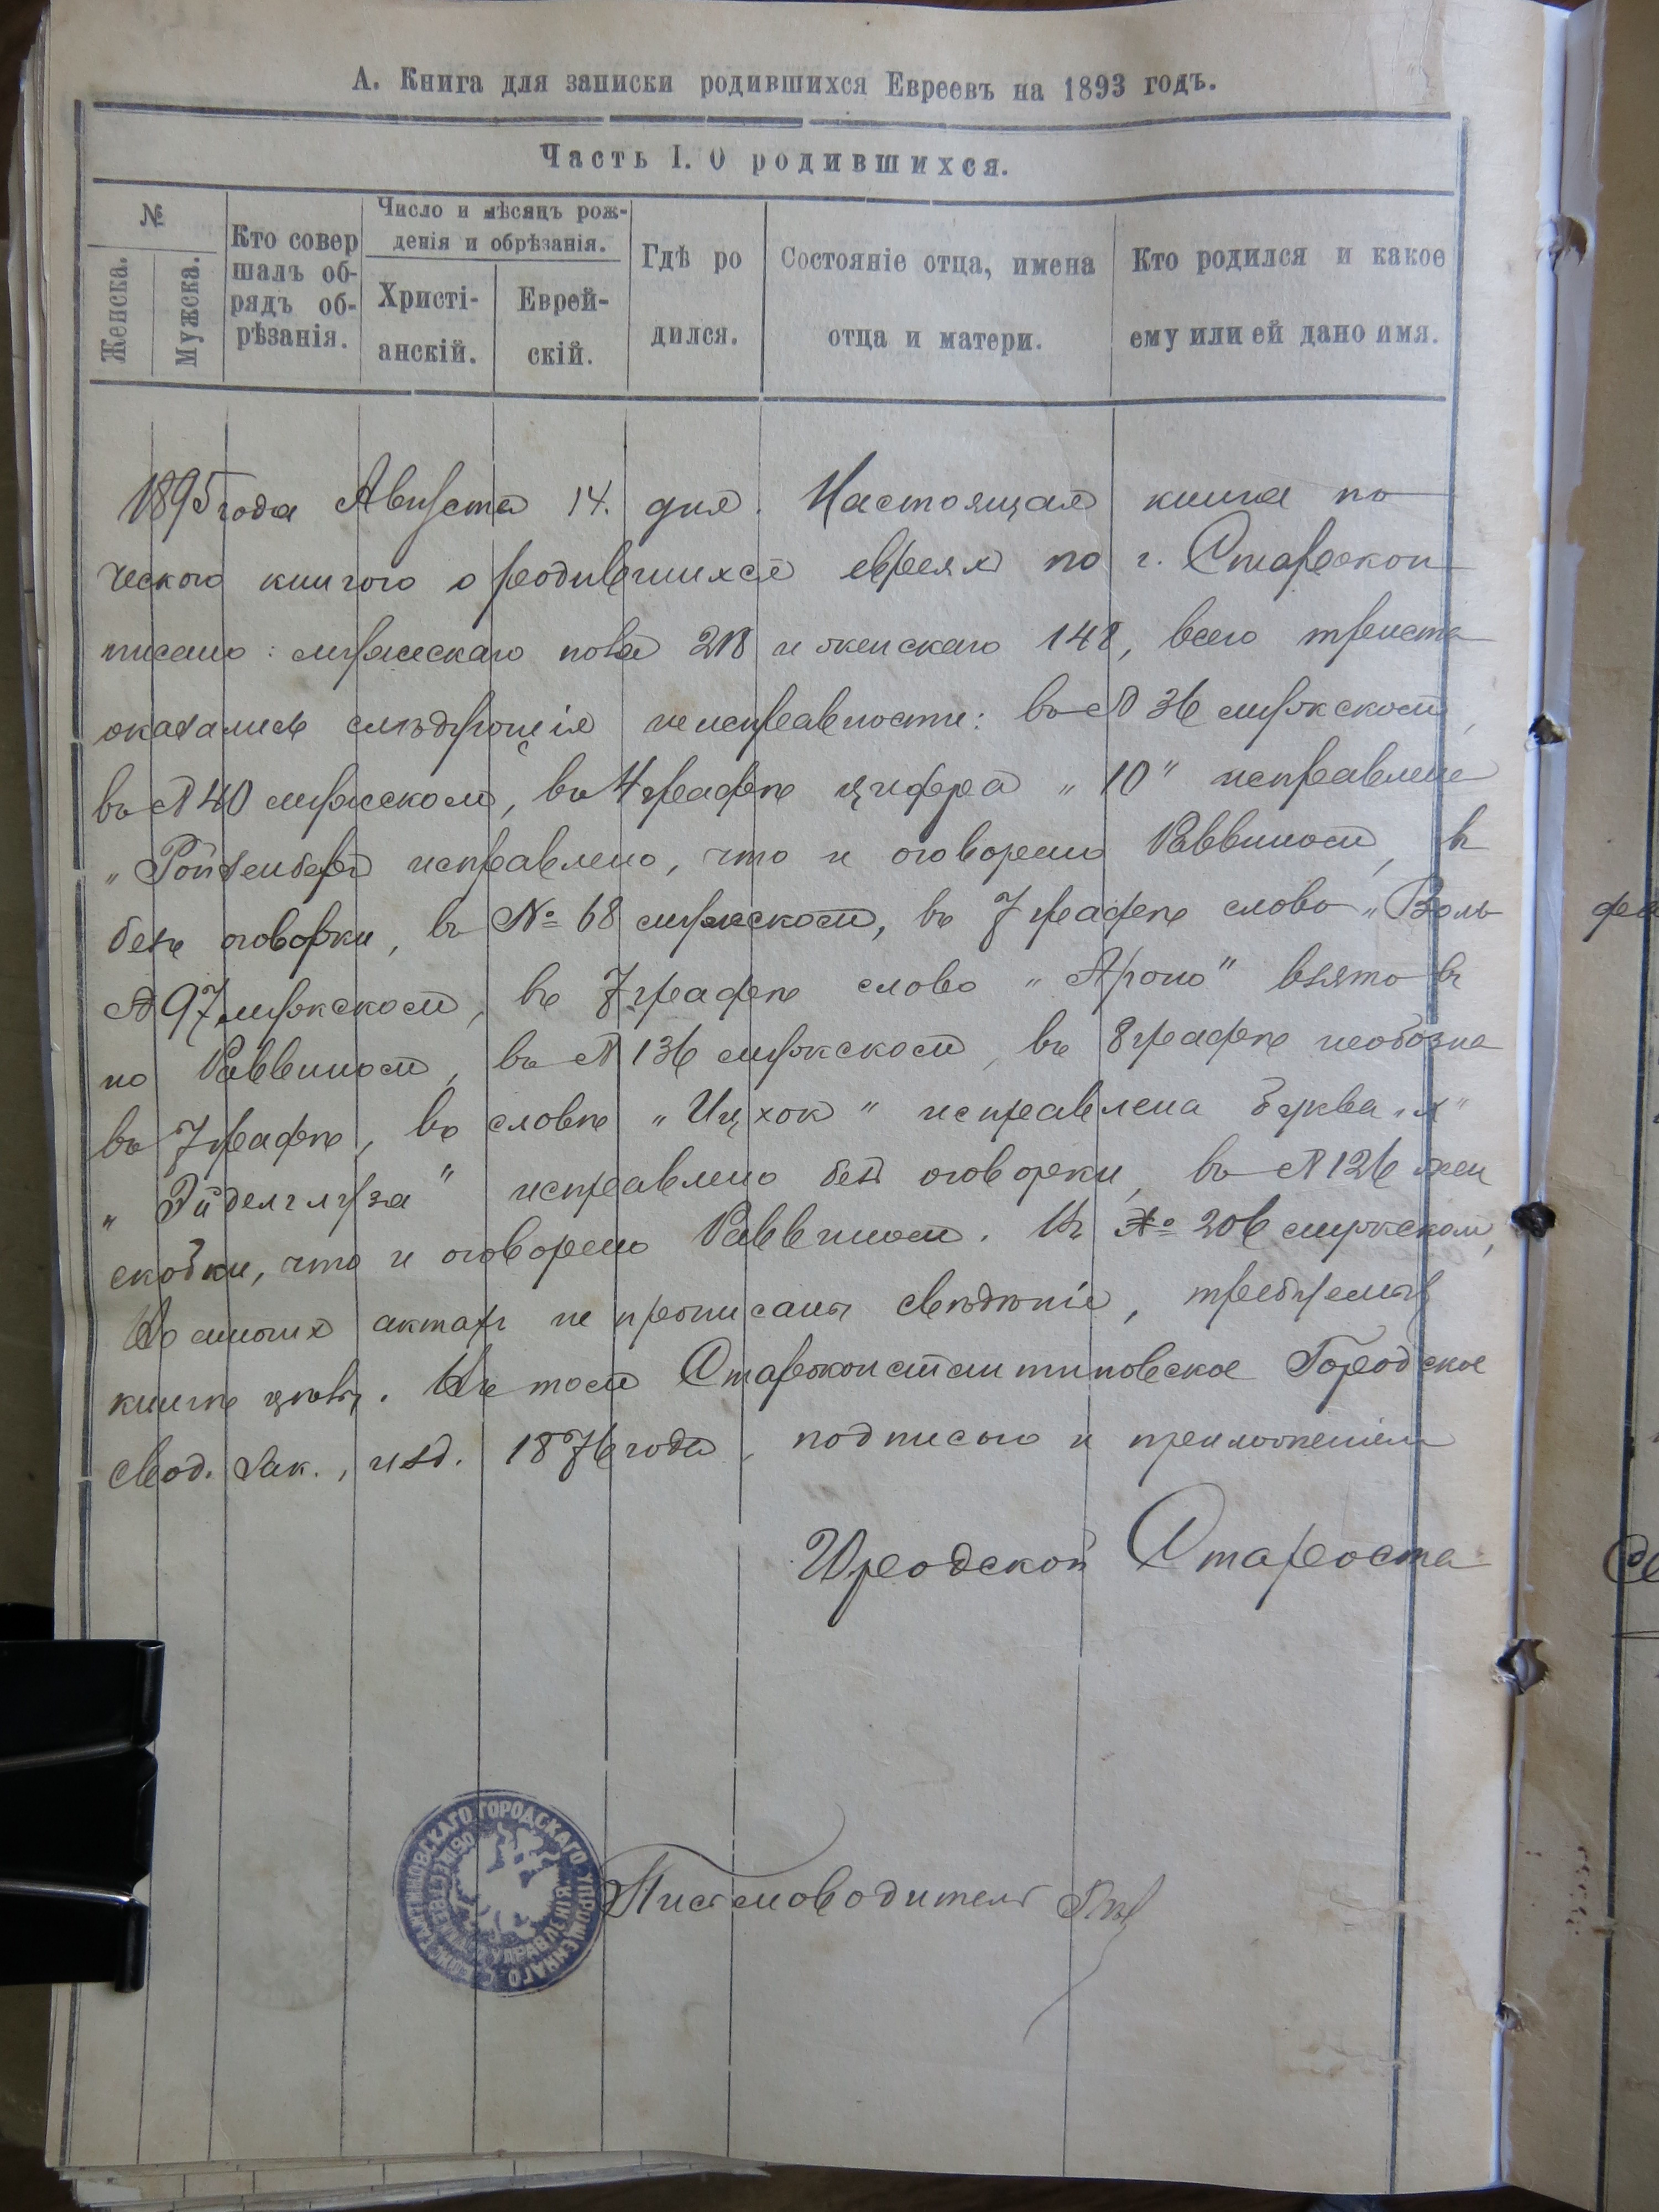 А. Книга для записки родившихся Евреевъ на 1893 годъ.
Часть I. О родившихся.
№
Женска.
Мужска.
Кто совер
шалъ об-
рядъ об-
рѣзанія.
Число и мѣсяцъ рож-
денія и обрѣзанія.
Христі-
анскій.
Еврей-
скій.
Гдѣ ро
дился.
Состояніе отца, имена
отца и матери.
Кто родился и какое
ему или ей дано имя.
1895 года Августа 14. дня. Настоящая книга по
ческою книгою о родившихся евреях по г. Староkон
писано: мужескаго пола 218 и женскаго 148, всего триста
оказались слѣдующія неисправности: въ № 36 мужском,
въ № 40 мужеском, въ 4 графѣ цифра „10" исправлена
„Ройзенберг исправлено, что и оговорено Раввином, въ
безъ оговорки, въ № 68 мужеском, въ 7 графѣ слово „Воль
№ 97 мужском, въ 7 графѣ слово „Ароно" взято въ
но Раввином, въ № 136 мужском, въ 8 графѣ необозна
въ 7 графѣ, въ словѣ „Ицхок" исправлена буква „х"
исправлено без оговорки, въ № 126 жен
скобки, что и оговорено Раввином. Въ № 206 мужском,
Во многих актах не прописаны свѣдѣнія, требуемыя
книгѣ цѣлы. Въ том Староконстантиновское Городское
Свод. Зак., изд. 1876 года, подписью и приложеніем
Городской Староста
Письмоводитель